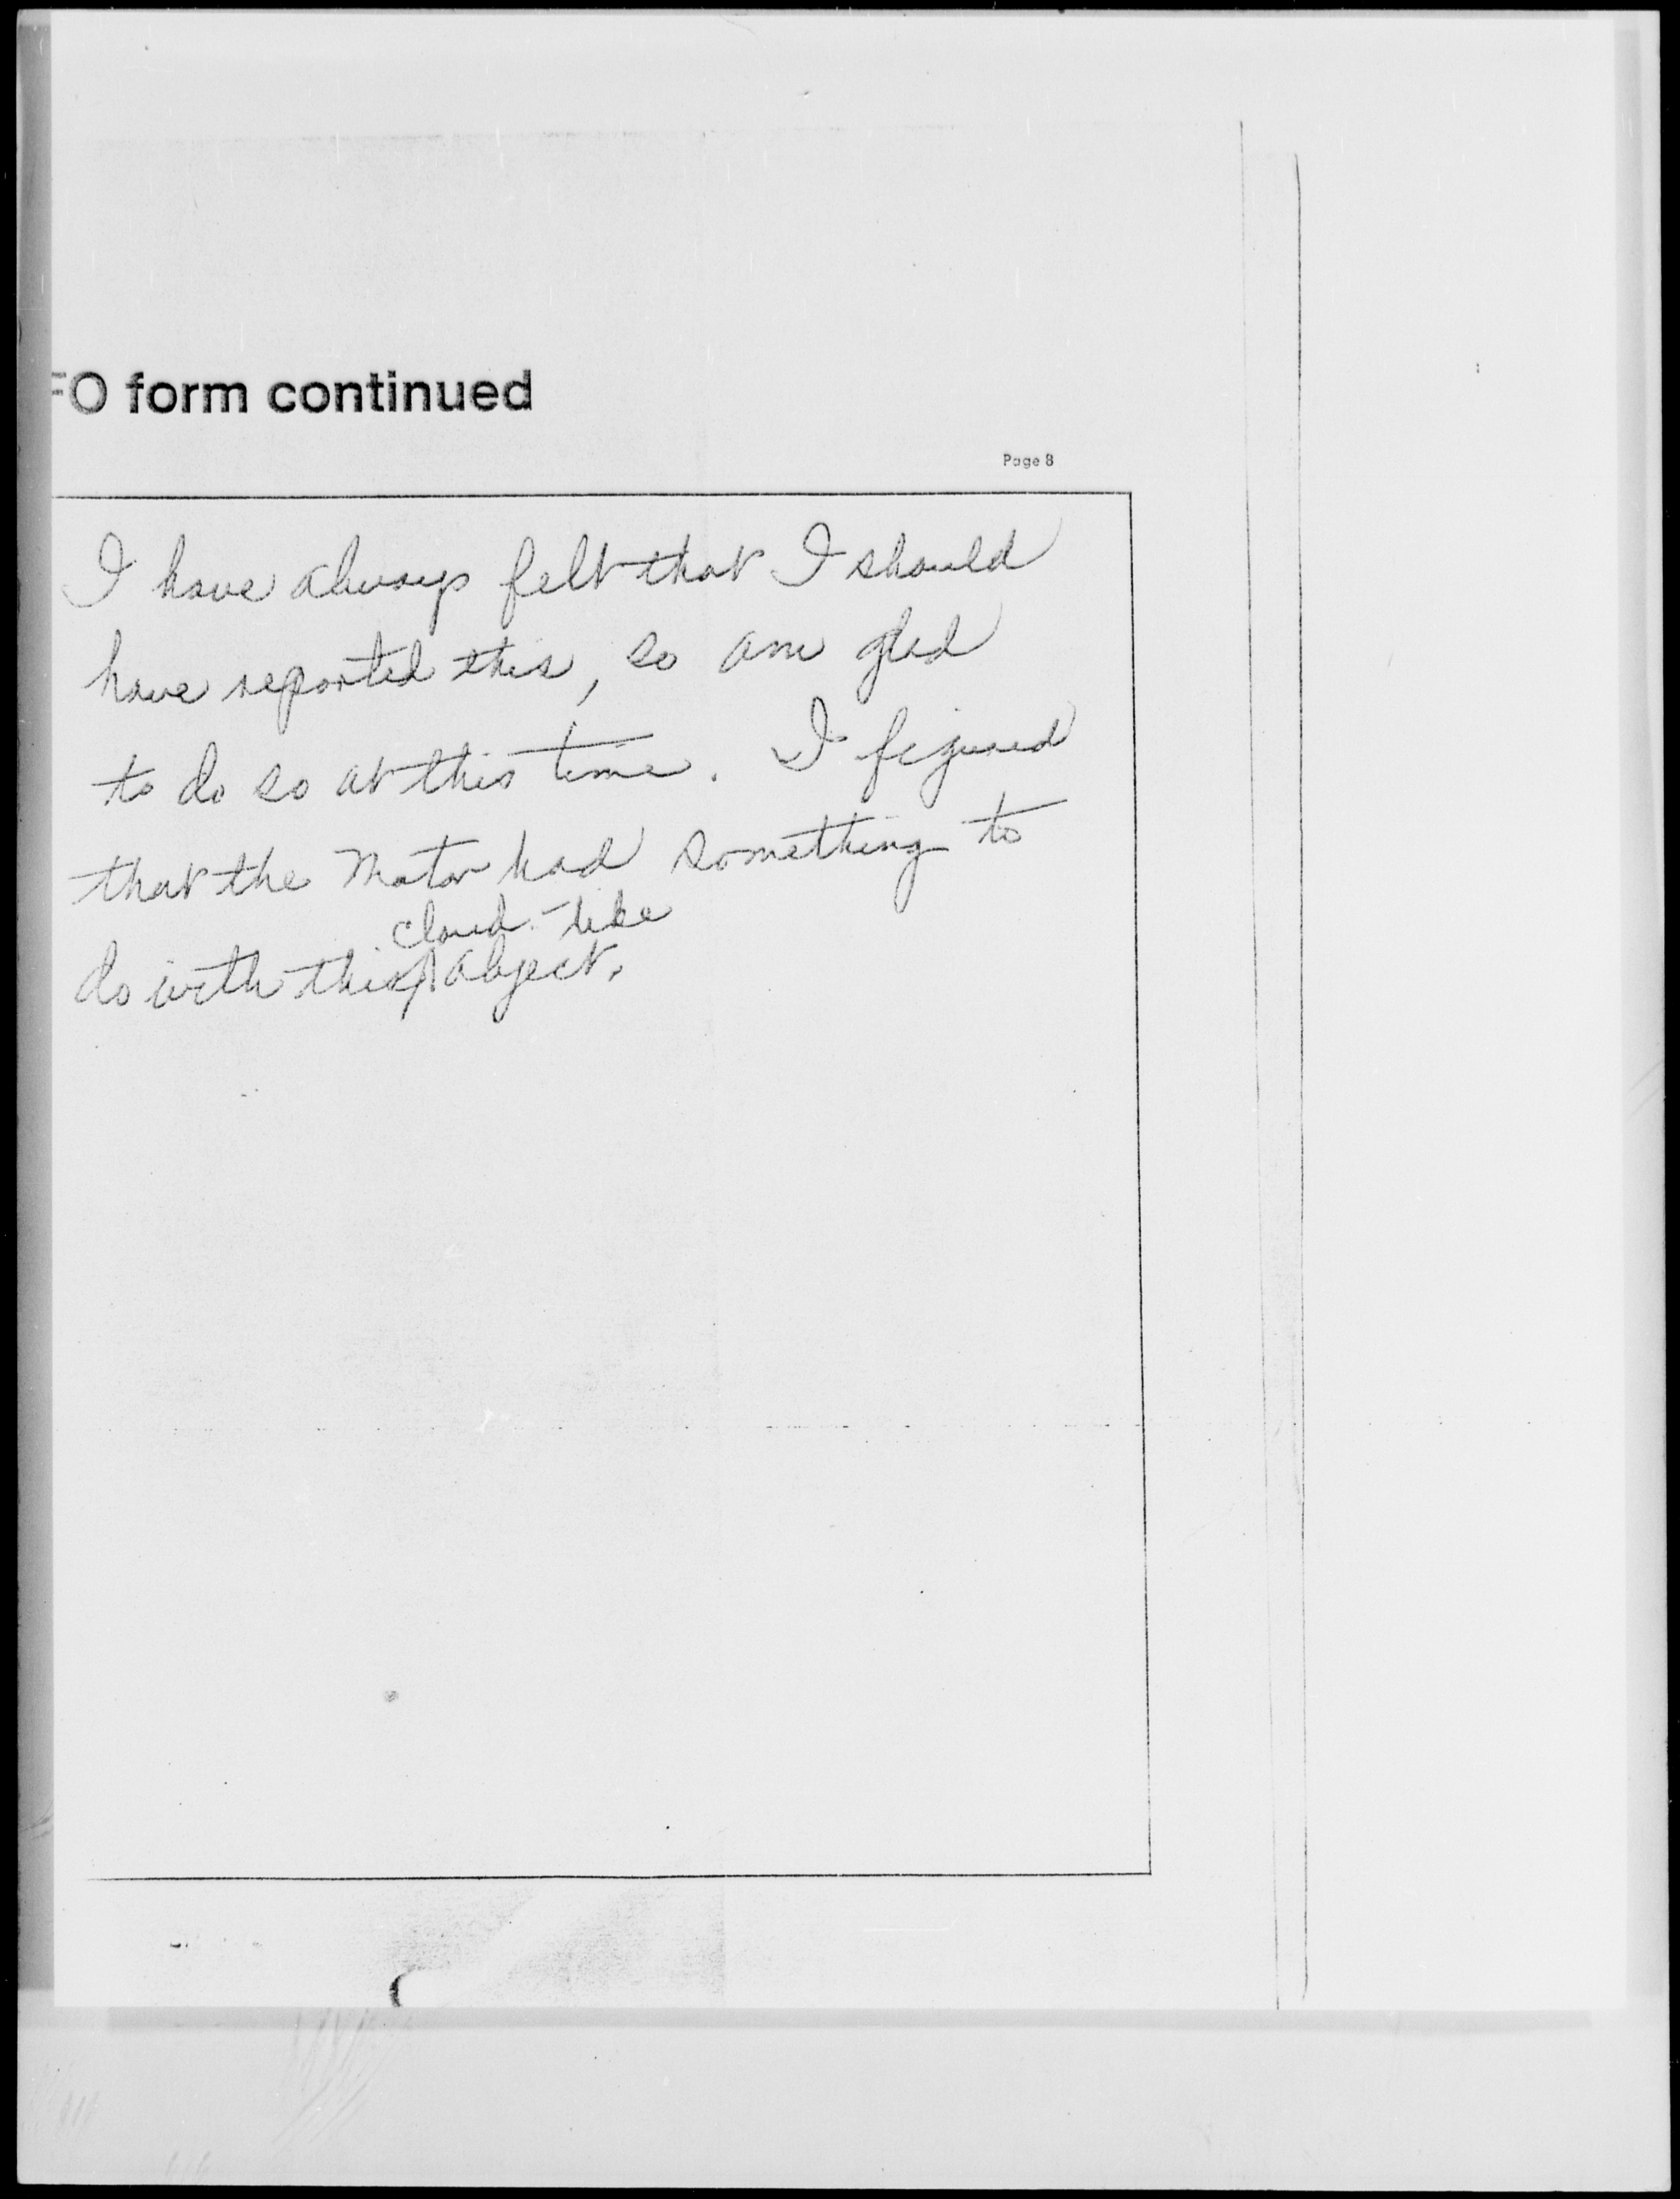 FO form continued
Page 8
I have always felt that I should
have reported this, so am glad
to do so at this time. I figured
that the Motor had something to
cloud-like
do with this object.